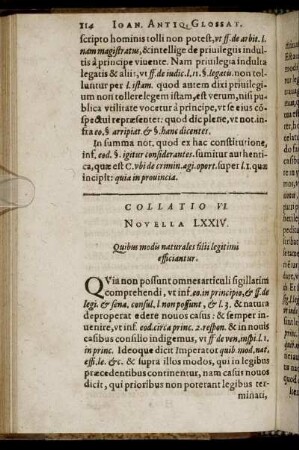 114 IOAN. ANTIQ. GLOSSAT.
scripto hominis tolli non potest, vt ff. de arbit. l.
nam magistratus, & intellige de priuilegiis indul-
tis à principe viuente. Nam priuilegia indulta
legatis & aliis, vt ff. de iudic. l. 11. §. legatu. non tol-
luntur per l. istam. quod autem dixi priuilegi-
um non tollere legem istam, est verum, nisi pu-
blica vtilitate vocetur à principe, vt se eius cōs-
pectui repræsentet: quod dic plene, vt not. in-
fra eo. §. arripiat. & §. hanc dicentes.
In summa not. quod ex hac constitutione,
inf. eod. §. igitur considerantes. sumitur authen-
tica, quæ est C. vbi de crimin. agi. oport. super l. 1. quæ
incipit: quia in prouincia.
COLLATIO VI.
NOVELLA LXXIV.
Quibus modis naturales filii legitimi
efficiantur.
QVia non possunt omnes articuli sigillatim
comprehendi, vt inf. eo. in principio, & ff. de
legi. & sena. consul. l. non possunt, & l. 3. & natura
deproperat edere nouos casus: & semper in-
uenire, vt inf. eod. circa princ. 2. respon. & in nouis
casibus consilio indigemus, vt ff. de ven. inspi. l. 1.
in princ. Ideoque dicit Imperator quib. mod. nat.
effi. le. &c. & supra illos modos, qui in legibus
præcedentibus continentur, nam casus nouos
dicit, qui prioribus non poterant legibus ter-
minari,